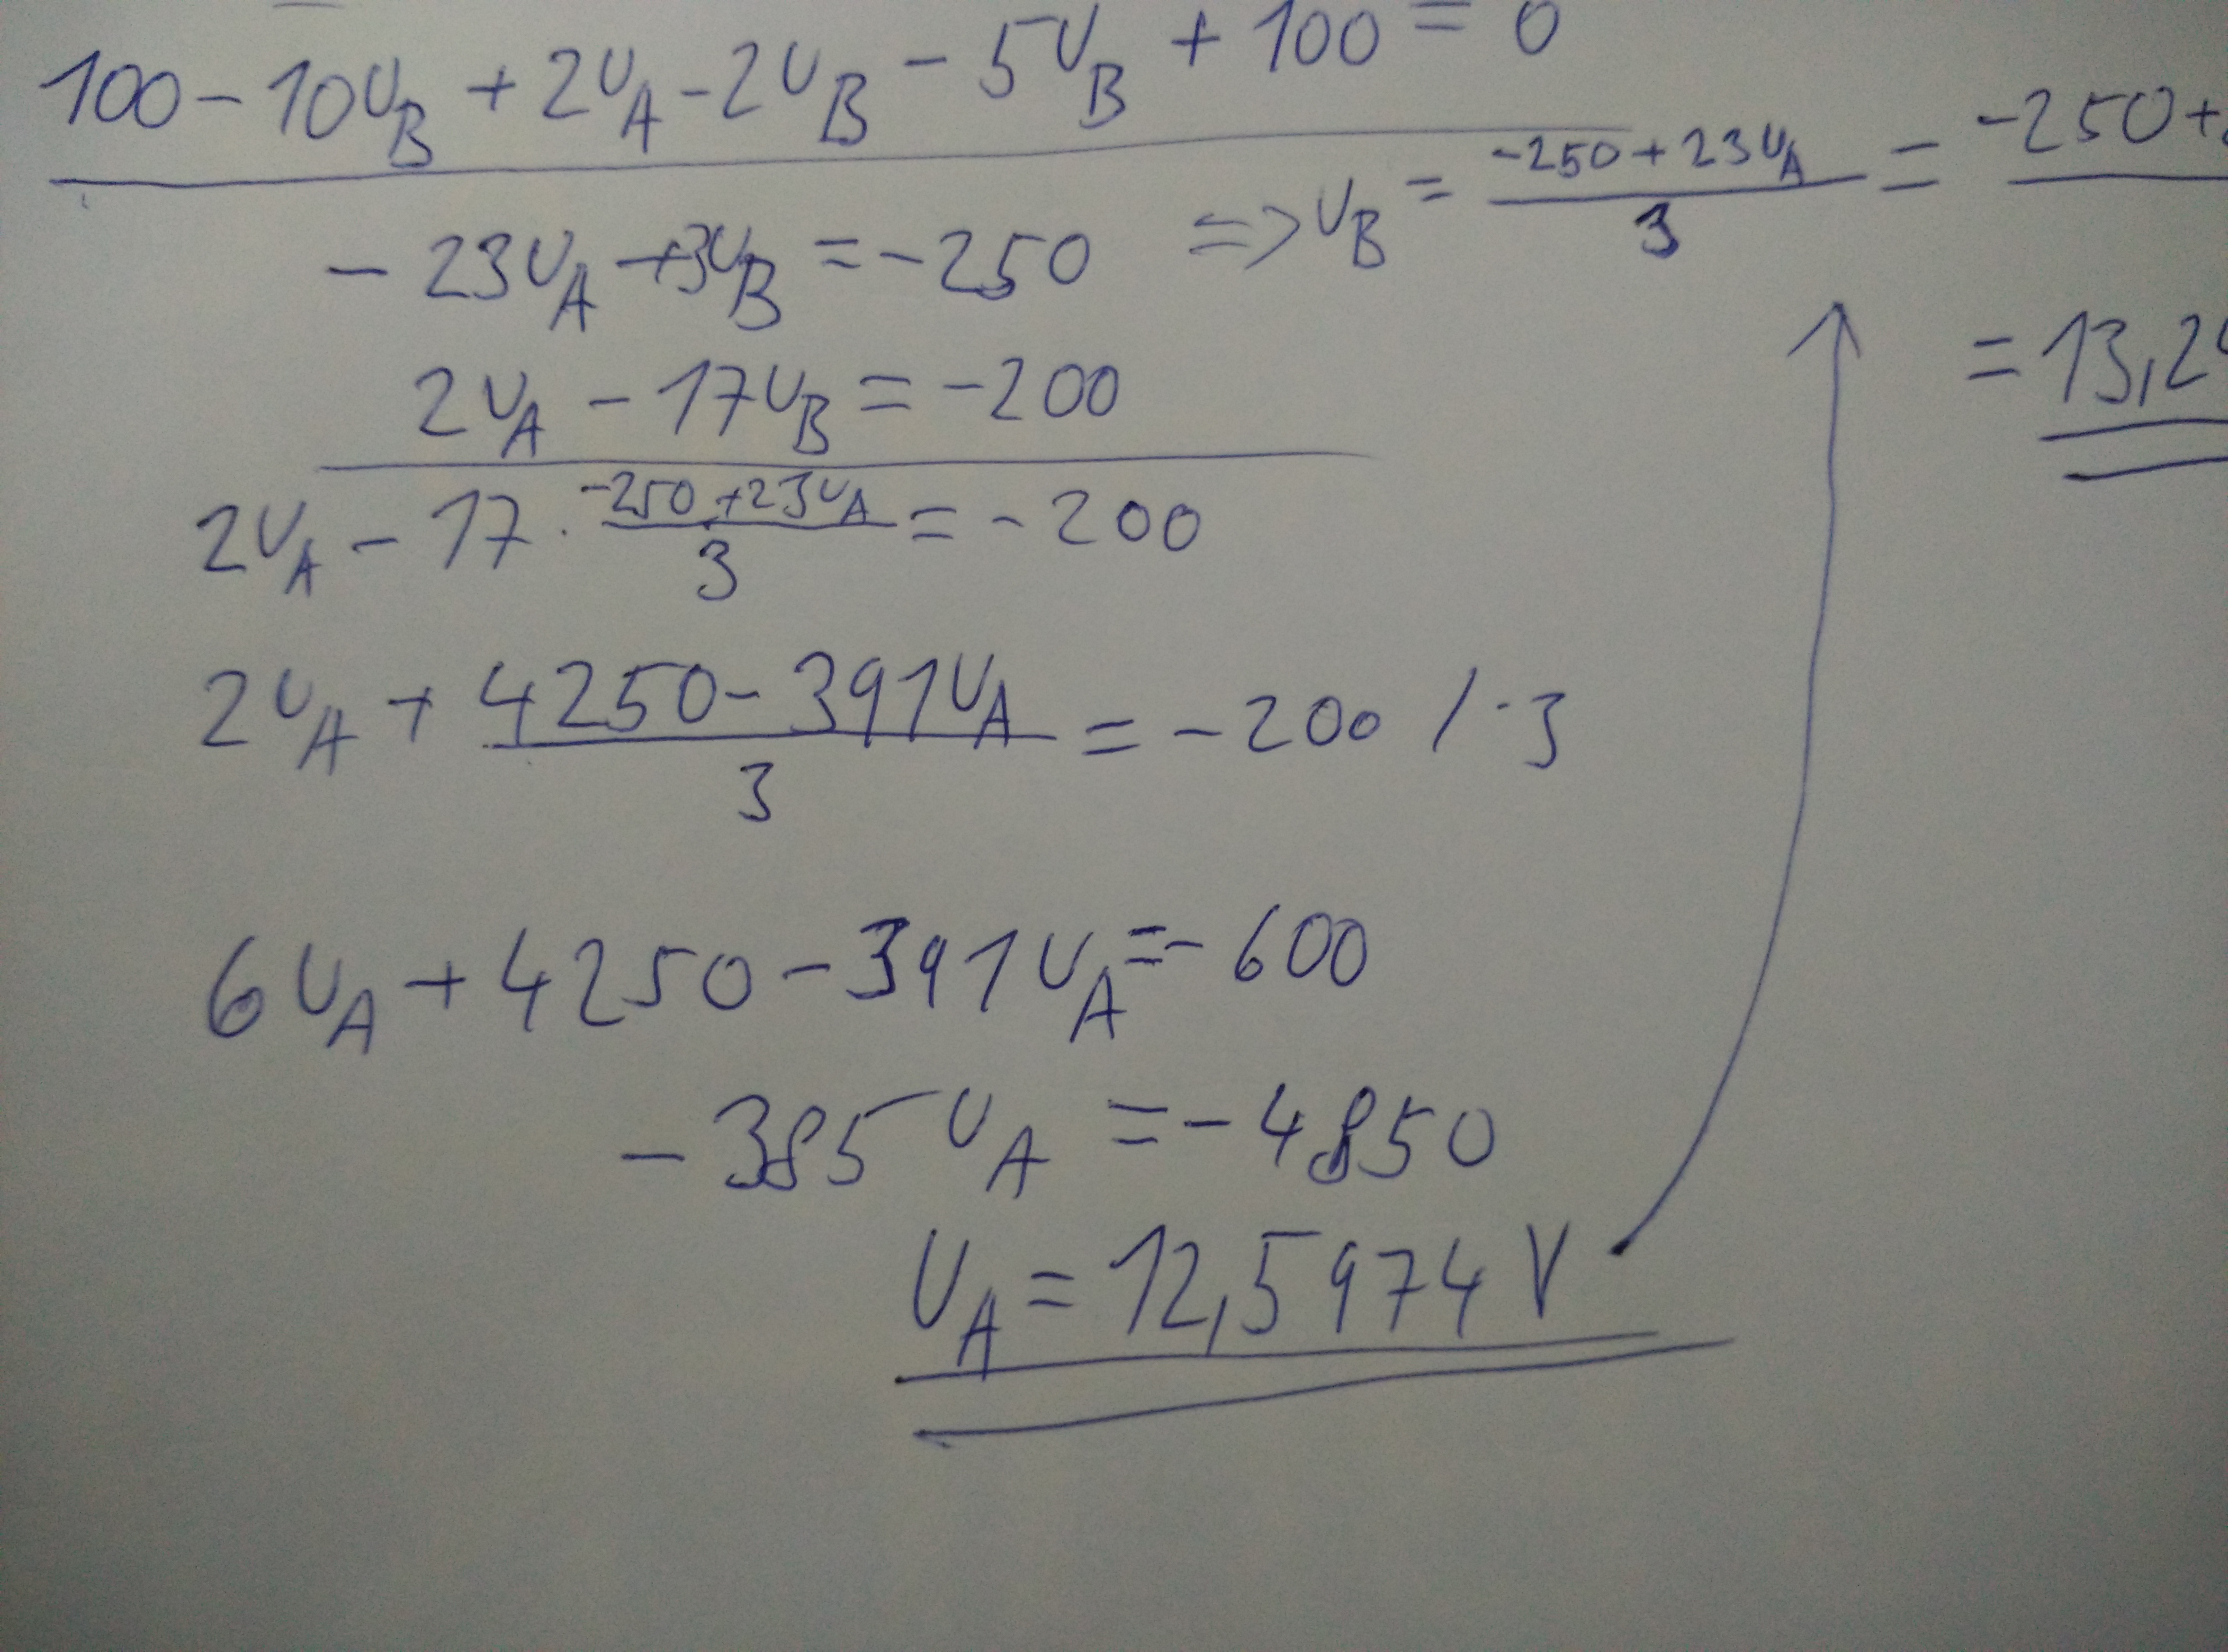 100 - 10U_B + 2U_A - 2U_B - 5U_B + 100 = 0
-23U_A + 3U_B = -250 => U_B = (-250 + 23U_A)/3 = -250 +
= 13,2
2U_A - 17U_B = -200
2U_A - 17 · (-250 + 23U_A)/3 = -200
2U_A + (4250 - 391U_A)/3 = -200 / · 3
6U_A + 4250 - 391U_A = -600
-385U_A = -4850
U_A = 12,5974 V